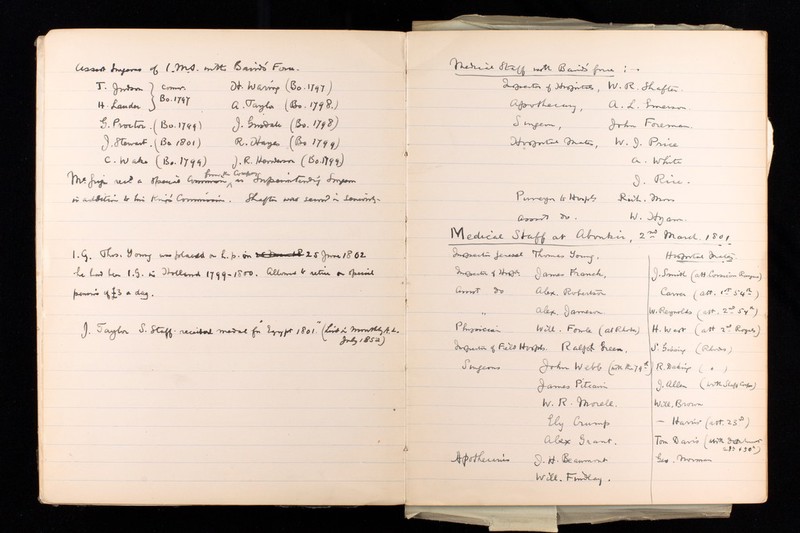 Assist Surgeons of I.M.S. with Baird's Force.
T. Judson } Comms. Dr. Waring (Bo. 1797)
H. Lander } Bo. 1797 A. Taylor (Bo. 1798.)
G. Proctor. (Bo. 1799) J. (Bo. 1798)
J. Stewart. (Bo 1801) R. Hayes (Bo 1799)
C. Wake (Bo. 1799) J. R. Henderson (Bo. 1799)
Mr rec'd a special Commission, from the Company as Superintending Surgeon
in addition to his King's Commission. Shafter was second in seniority.
I.G. Thos. Young was placed on h.p. on 25 June 1802
he had been I.G. in Holland 1799-1800. Allowed to retire on special
pension of £3 a day.
J. Taylor S. Staff. received medal for Egypt 1801. (List in monthly A.L.
July 1852)
Medical Staff with Baird's force : -
Inspector of Hospitals, W. R. Shafter.
Apothecary, A. L. Emerson
Surgeon, John Foreman.
Hospital Mates, W. J. Price
A. White
J. Rice.
Purveyor to Hospls Rich. Moss
Assist do. W. Hyam.
Medical Staff at Aboukir, 2nd March. 1801.
Inspector General Thomas Young.
Inspector of Hospls James Franck,
Assist do Alex. Robertson
" Alex. Jameson
Physician Will. Fowle (at Rhodes)
Inspector of Field Hospls. Ralph Green,
Surgeons John Webb (with the 79th)
James Pitcairn
W. R. Morell.
Ely Crump
Alex Grant.
Apothecaries J. H. Beaumont
Will. Findlay.
Hospital Mates.
J. Smith (att Corsican Rangers)
Carver (att. 1st 54th)
W. Reynolds (att. 2nd 54th)
H. West (att 2nd Royals)
S. (Rhodes)
R. ( " )
J. Allen (with Staff Corps)
Will. Brown
- Harris (att. 25th)
Tom Davis (with
Geo. Norman